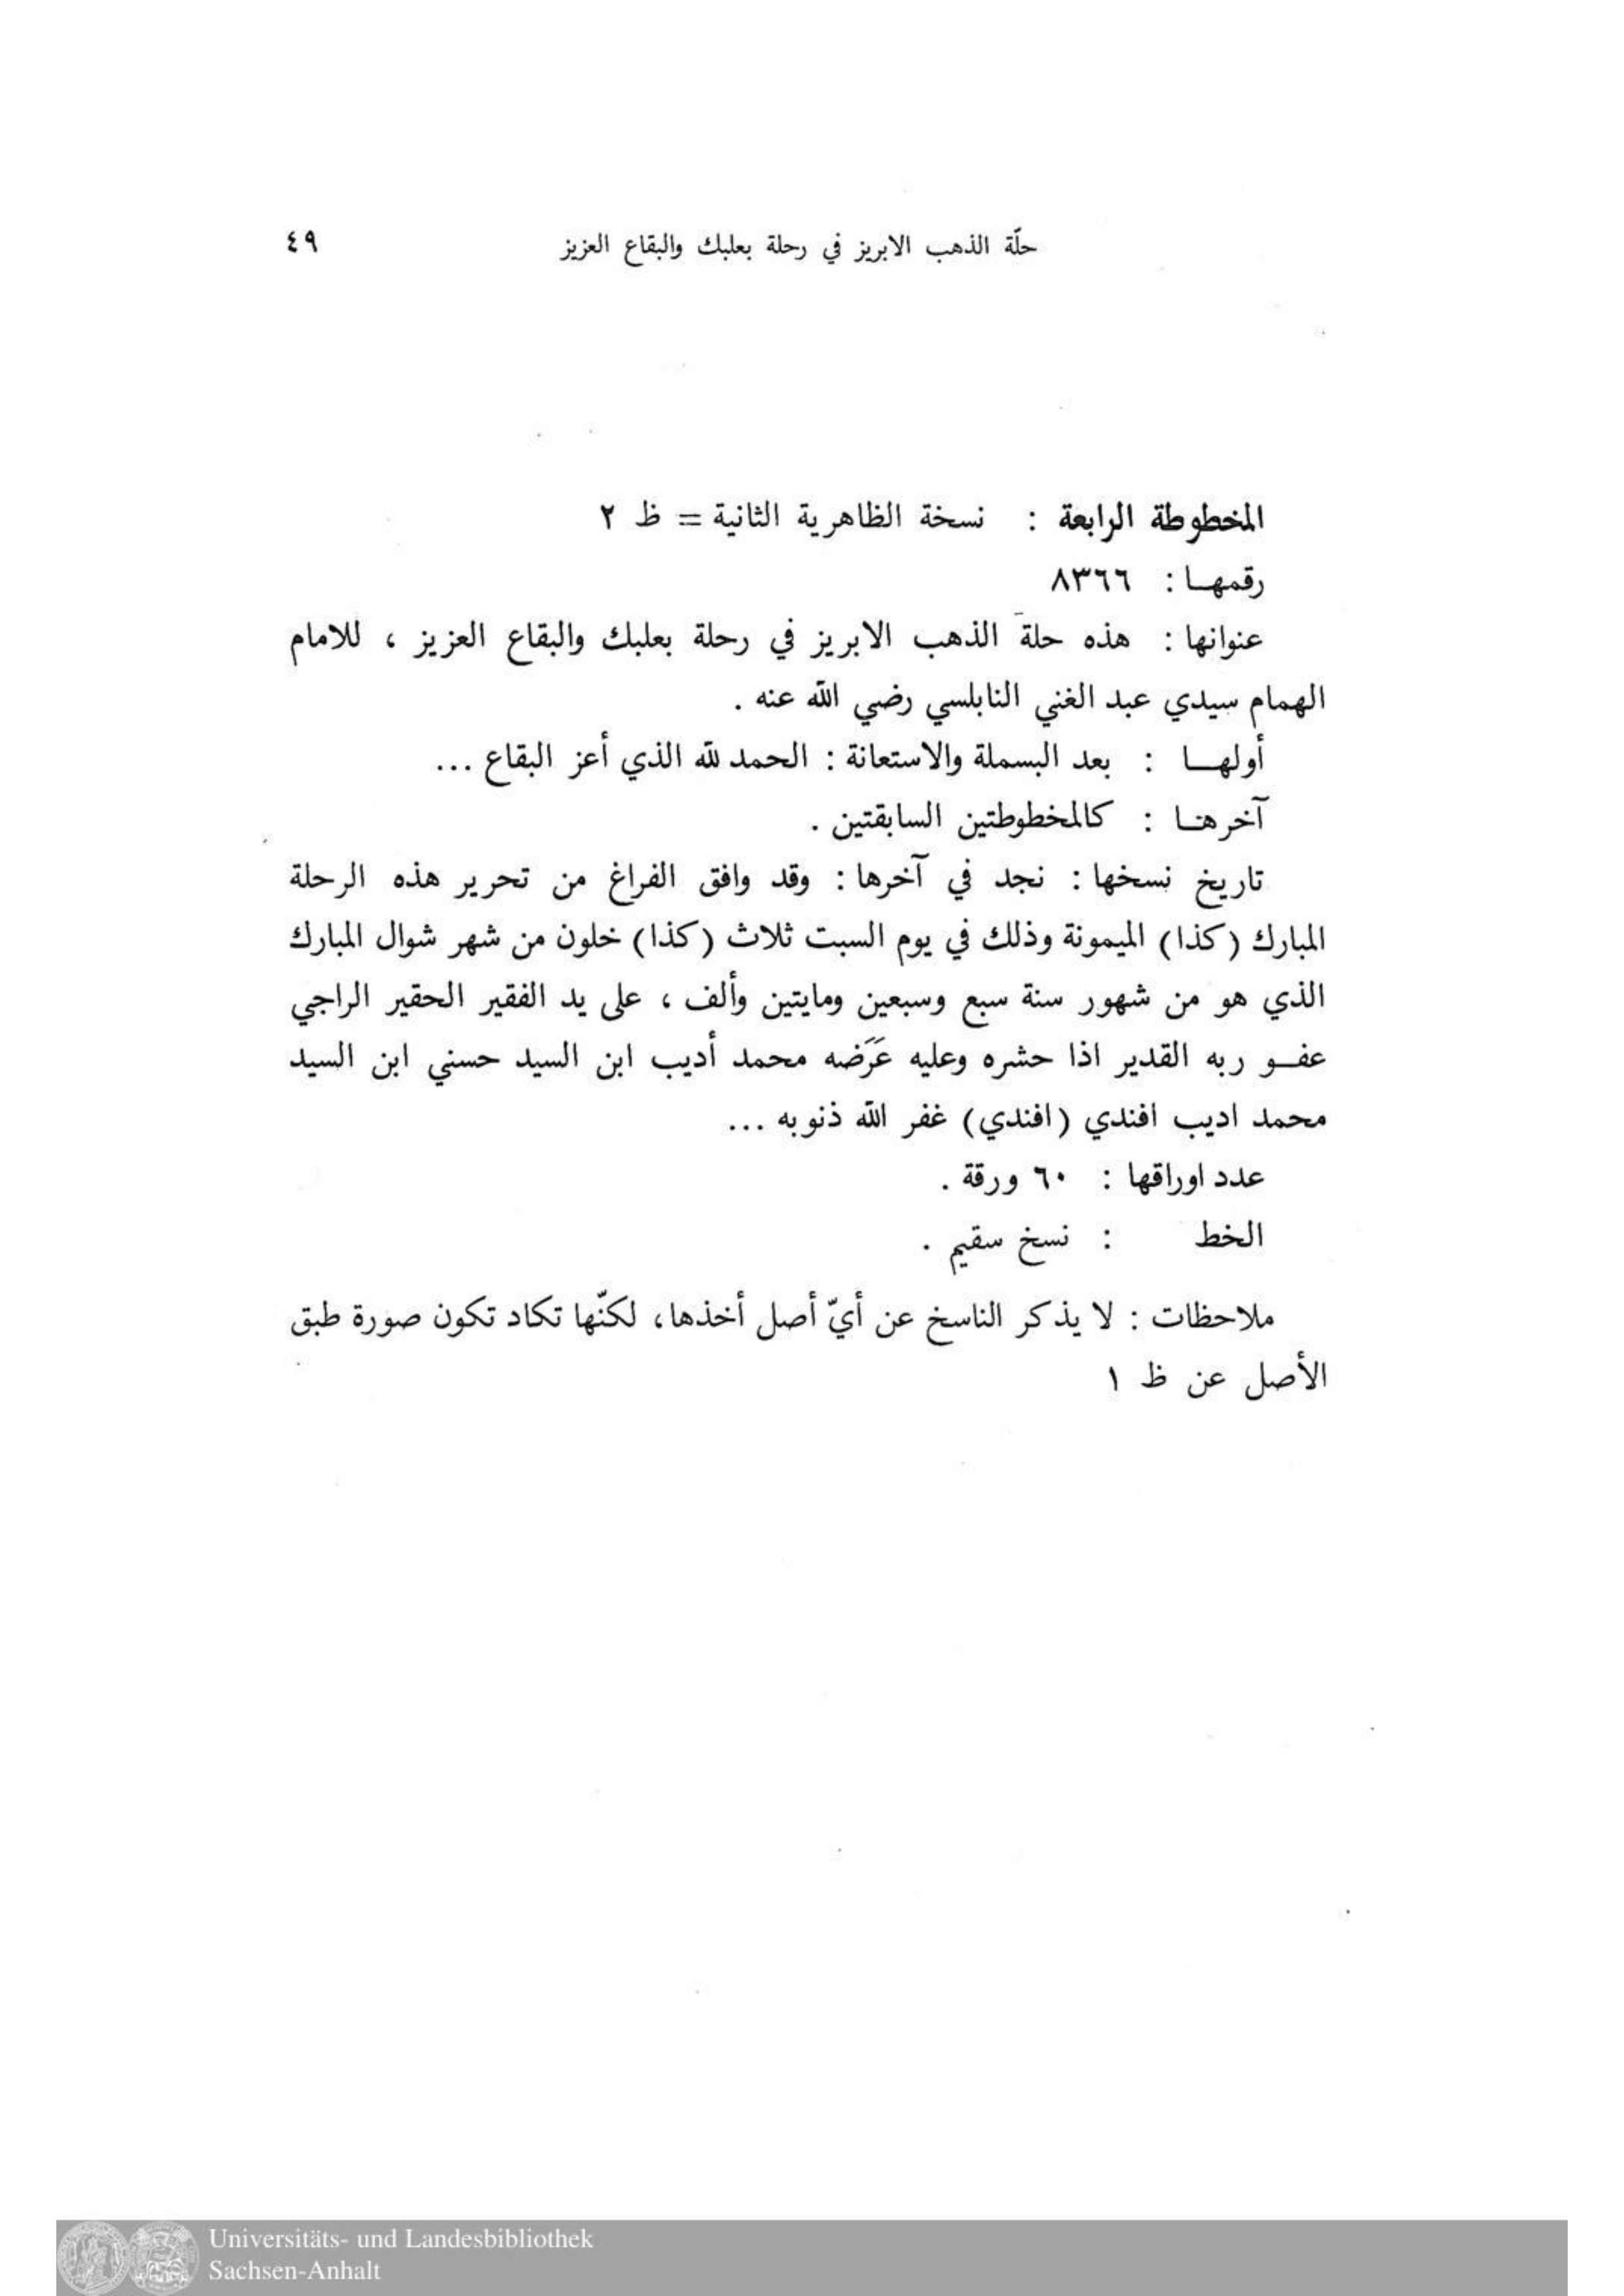 حلّة الذهب الابريز في رحلة بعلبك والبقاع العزيز ٤٩
المخطوطة الرابعة : نسخة الظاهرية الثانية = ظ ٢
رقمهـا : ٨٣٦٦
عنوانها : هذه حلة الذهب الابريز في رحلة بعلبك والبقاع العزيز ، للامام
الهمام سيدي عبد الغني النابلسي رضي الله عنه .
أولهــا : بعد البسملة والاستعانة : الحمد لله الذي أعز البقاع ...
آخرهـا : كالمخطوطتين السابقتين .
تاريخ نسخها : نجد في آخرها : وقد وافق الفراغ من تحرير هذه الرحلة
المبارك (كذا) الميمونة وذلك في يوم السبت ثلاث (كذا) خلون من شهر شوال المبارك
الذي هو من شهور سنة سبع وسبعين ومايتين وألف ، على يد الفقير الحقير الراجي
عفــو ربه القدير اذا حشره وعليه عَرَضه محمد أديب ابن السيد حسني ابن السيد
محمد اديب افندي (افندي) غفر الله ذنوبه ...
عدد اوراقها : ٦٠ ورقة .
الخط : نسخ سقيم .
ملاحظات : لا يذكر الناسخ عن أيّ أصل أخذها، لكنّها تكاد تكون صورة طبق
الأصل عن ظ ١
Universitäts- und Landesbibliothek
Sachsen-Anhalt